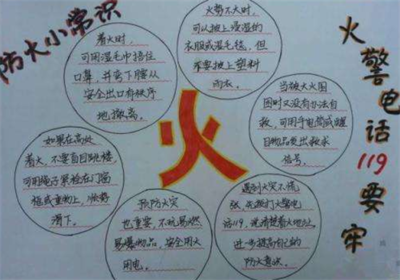 防火小常识
着火时，
可用湿毛巾捂住
口鼻，并弯下腰从
安全出口有秩序
地撤离。
火势不大时，
可以披上浸湿的
衣服或湿毛毯，但
不要披上塑料
雨衣。
火警电话119要牢
火
当被大火围
困时又没有办法自
救，可用手电筒或醒
目物品发出救求
信号。
如果在高处
着火，不要盲目跳楼
可用绳子紧拴在门窗
框或重物上，顺势
滑下。
预防火灾
也重要，不玩易燃
易爆物品，安全用火
用电。
遇到火灾不慌
张，先拨打火警电
话119，说清楚着火地址，
进一步提高自己的
防火意识。